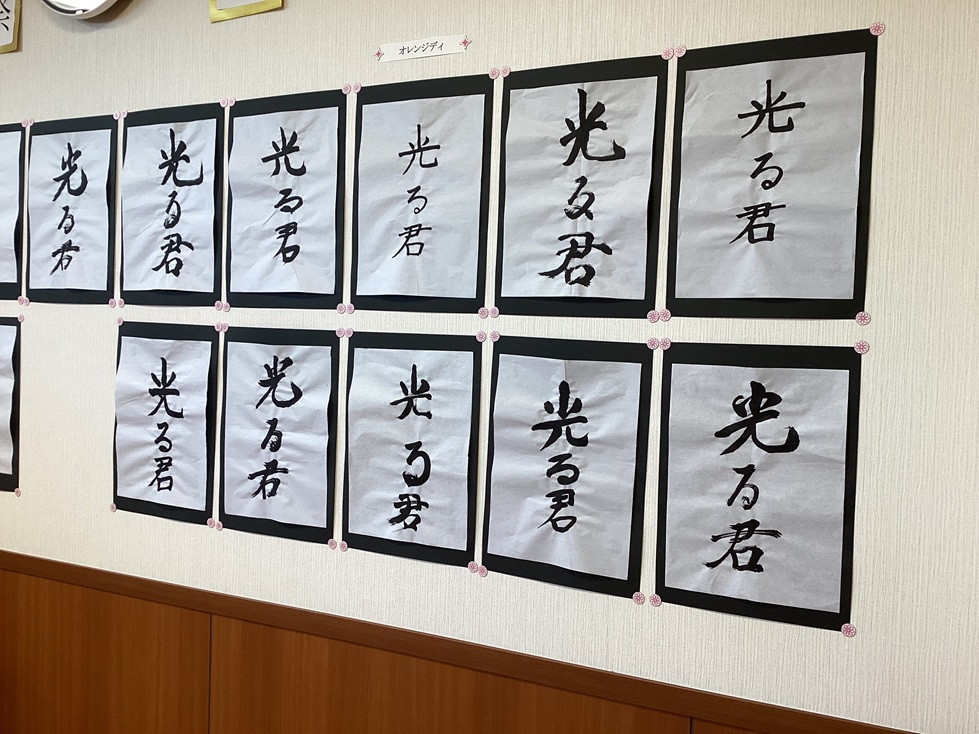 祭
オレンジデイ
光る君
光る君
光る君
光る君
光る君
光る君
光る君
光る君
光る君
光る君
光る君